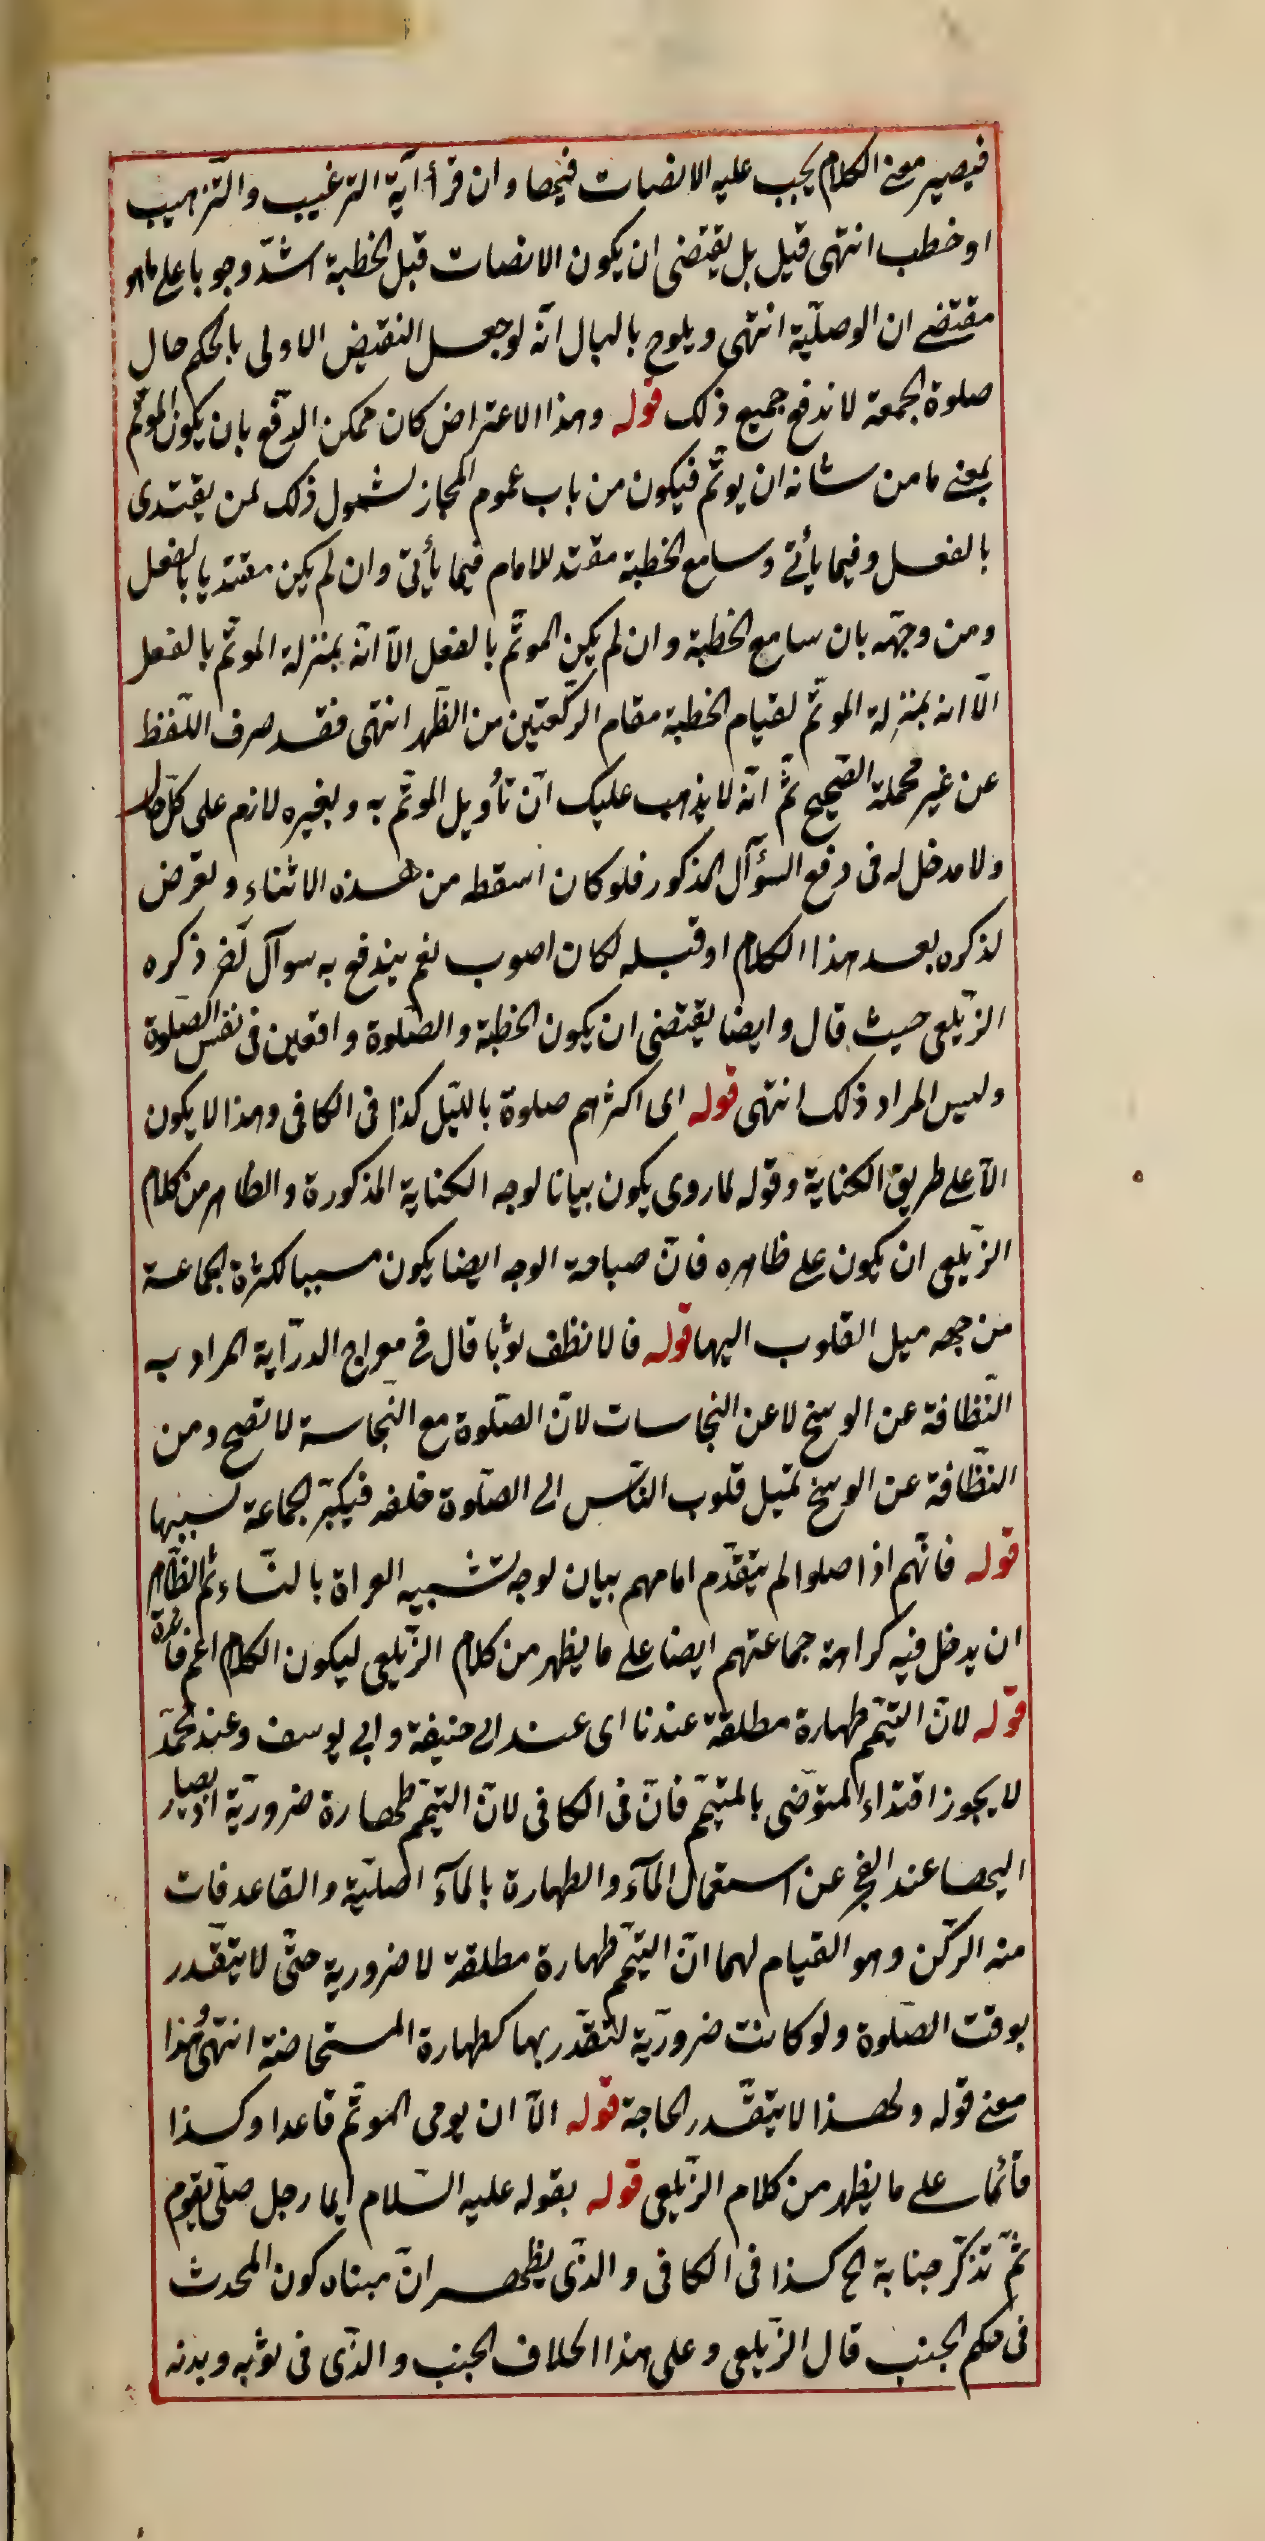 فيصير معنى الكلام يجب عليه الانصات فيها وان قرأ آية الترغيب والترهيب
او خطب انتهى قيل بل يقتضى ان يكون الانصات قبل الخطبة اشدّ وجوبا على ما هو
مقتضى ان الوصليّة انتهى ويلوح بالبال انّه لو جعل النقيض الاولى بالحكم حال
صلوة الجمعة لاندفع جميع ذلك قوله وهذا الاعتراض كان ممكن الدّفع بان يكون المؤتم
بمعنى ما من شانه ان يوتمّ فيكون من باب عموم المجاز لشمول ذلك لمن يقتدى
بالفعل وفيما يأتى وسامع الخطبة مقتد للامام فيما يأتى وان لم يكن مقتديا بالفعل
ومن وجّهه بان سامع الخطبة وان لم يكن الموتمّ بالفعل الّا انّه بمنزلة الموتمّ بالفعل
الّا انه بمنزلة الموتمّ لقيام الخطبة مقام الرّكعتين من الظّهر انتهى فقد صرف اللّفظ
عن غير محملة الصّحيح ثمّ انّه لا يذهب عليك انّ تأويل الموتمّ به وبغيره لازم على كلّ حال
ولا مدخل له فى دفع السّؤآل المذكور فلو كان اسقطه من هذه الاثناء وتعرض
لذكره بعد هذا الكلام او قبله لكان اصوب نعم يندفع به سوآل آخر ذكره
الزّيلعى حيث قال وايضا يقتضى ان يكون الخطبة والصّلوة واقعين فى نفس الصّلوة
وليس المراد ذلك انتهى قوله اى اكثرهم صلوة بالليّل كذا فى الكافى وهذا لا يكون
الّا على طريق الكناية وقوله لما روى يكون بيانا لوجه الكناية المذكورة والظاهر من كلام
الزّيلعى ان يكون على ظاهره فانّ صباحة الوجه ايضا يكون سببا لكثرة الجماعة
من جهه ميل القلوب اليها قوله فالانظف ثوبا قال فى معراج الدرّاية المراد به
النّظافة عن الوسخ لا عن النجاسات لانّ الصلّوة مع النّجاسة لا تصح ومن
النظّافة عن الوسخ تميل قلوب النّاس الى الصلّوة خلفه فيكثر الجماعة بسببها
قوله فانّهم اذا صلوا لم يتقدّم امامهم بيان لوجه تشبيه العراة بالنّساء ثم الظّاهر
ان يدخل فيه كراهة جماعتهم ايضا على ما يظهر من كلام الزّيلعى ليكون الكلام اعم فائدة
قوله لانّ التيمّم طهارة مطلقة عندنا اى عند ابى حنيفة وابى يوسف وعند محمّد
لا يجوز اقتداء المتوضّى بالمتيمّم فانّ فى الكافى لانّ التيمّم طهارة ضروريّة اذ يصار
اليها عند العجز عن استعمال المآء والطهارة بالمآء اصليّة والقاعد فات
منه الركّن وهو القيام لهما انّ التيمّم طهارة مطلقة لا ضرورية حتّى لا يتقّدر
بوقت الصّلوة ولو كانت ضروريّة لتقّدر بها كطهارة المستحاضة انتهى وهذا
معنى قوله ولهذا لا يتقّدر الحاجة قوله الّا ان يومى الموتمّ قاعدا وكذا
قائما على ما يظهر من كلام الزّيلعى قوله بقوله عليه السّلام ايما رجل صلّى بقوم
ثمّ تذكّر جنابة الخ كذا فى الكافى والذّى يظهر انّ مبناه كون المحدث
فى حكم الجنب قال الزّيلعى وعلى هذا الخلاف الجنب والذّى فى ثوبه وبدنه